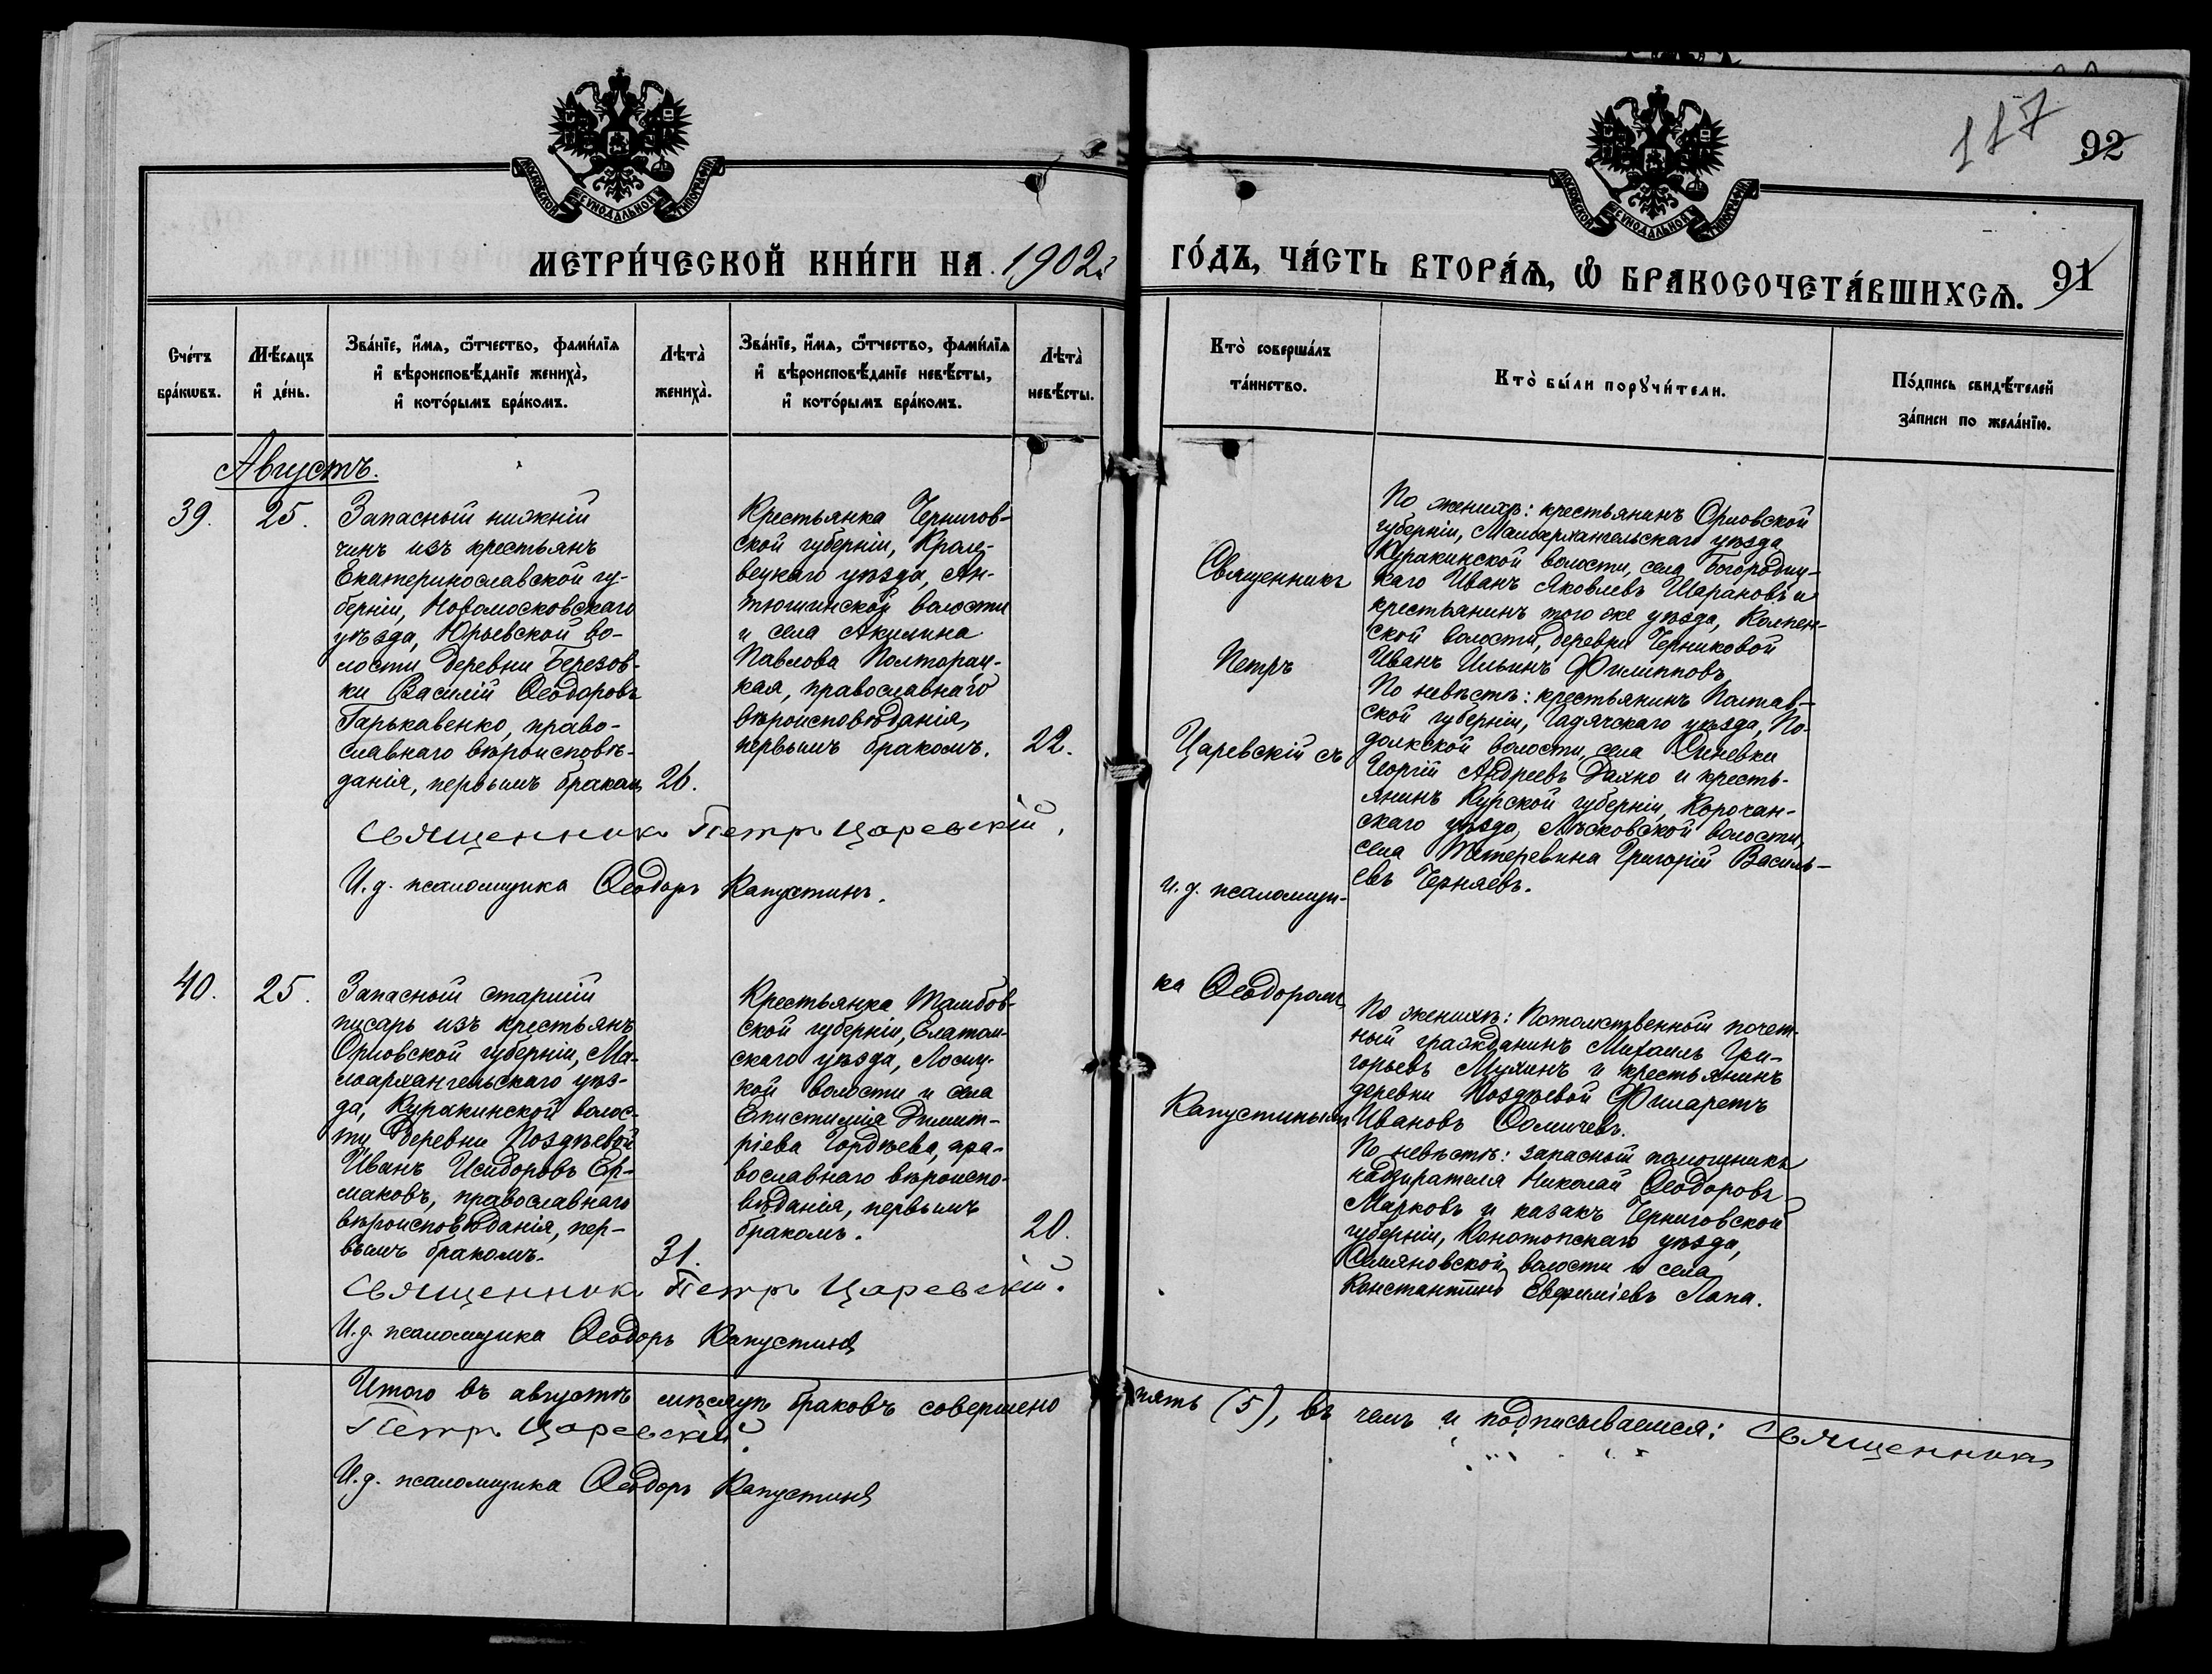 117
92
МОСКОВСКОЙ СѴНОДАЛЬНОЙ ТИПОГРАФІИ
МОСКОВСКОЙ СѴНОДАЛЬНОЙ ТИПОГРАФІИ
МЕТРИ́ЧЕСКОЙ КНИ́ГИ НА 1902й
ГО́ДЪ, ЧА́СТЬ ВТОРА́Ѧ, Ѽ БРАКОСОЧЕТА́ВШИХСѦ.
91
Сче́тъ
бра́кѡвъ.
Мѣ́сѧцъ
и҆ де́нь.
Зва́нїе, и҆́мѧ, ѻ҆́тчество, фами́лїѧ
и҆ вѣроисповѣ́данїе жениха̀,
и҆ кото́рымъ бра́комъ.
Лѣта̀
жениха̀.
Зва́нїе, и҆́мѧ, ѻ҆́тчество, фами́лїѧ
и҆ вѣроисповѣ́данїе невѣ́сты,
и҆ кото́рымъ бра́комъ.
Лѣта̀
невѣ́сты.
Кто̀ соверша́лъ
та́инство.
Кто̀ бы́ли порꙋчи́тели.
По́дпись свидѣ́телей
за́писи по жела́нїю.
Августъ.
39.
25.
Запасный нижній
чинъ изъ крестьянъ
Екатеринославской гу-
берніи, Новомосковскаго
уѣзда, Юрьевской во-
лости деревни Березов-
ки Василій Ѳеодоровъ
Гарькавенко, право-
славнаго вѣроисповѣ-
данія, первымъ бракомъ
26.
Крестьянка Чернигов-
ской губерніи, Кроле-
вецкаго уѣзда, Ан-
тюшинской волости
и села Акилина
Павлова Полторац-
кая, православнаго
вѣроисповѣданія,
первымъ бракомъ.
22.
Священникъ Петръ Царевскій.
И.д. псаломщика Ѳеодоръ Капустинъ.
Священникъ
Петръ
Царевскій съ
и.д. псаломщи-
ка Ѳеодоромъ
Капустинымъ
По женихѣ: крестьянинъ Орловской
губерніи, Малоархангельскаго уѣзда
Куракинской волости, села Богородиц-
каго Иванъ Яковлевъ Шарановъ и
крестьянинъ того же уѣзда, Колпен-
ской волости, деревни Черниковой
Иванъ Ильинъ Филипповъ,
По невѣстѣ: крестьянинъ Полтав-
ской губерніи, Гадячскаго уѣзда, По-
долкской волости, села Синевки
Георгій Андреевъ Дахно и кресть-
янинъ Курской губерніи, Корочан-
скаго уѣзда, Лѣсковской волости,
села Тетеревина Григорій Василь-
евъ Черняевъ.
40.
25.
Запасный старшій
писарь изъ крестьянъ
Орловской губерніи, Ма-
лоархангельскаго уѣз-
да, Куракинской волос-
ти деревни Поздѣевой
Иванъ Исидоровъ Ер-
маковъ, православнаго
вѣроисповѣданія, пер-
вымъ бракомъ.
31.
Крестьянка Тамбов-
ской губерніи, Елатом-
скаго уѣзда, Лосиц-
кой волости и села
Епистимія Димит-
ріева Гордѣева, пра-
вославнаго вѣроиспо-
вѣданія, первымъ
бракомъ.
20.
По женихѣ: Потомственный почет-
ный гражданинъ Михаилъ Гри-
горьевъ Мухинъ и крестьянинъ
деревни Поздѣевой Филаретъ
Ивановъ Ѳомичевъ.
По невѣстѣ: запасный помощникъ
надзирателя Николай Ѳеодоровъ
Марковъ и казакъ Черниговской
губерніи, Конотопскаго уѣзда,
Семяновской волости и села
Константинъ Евфиміевъ Лапа.
Священникъ Петръ Царевскій.
И.д. псаломщика Ѳеодоръ Капустинъ
Итого въ августѣ мѣсяцѣ браковъ совершено пять (5), въ чемъ и подписываемся: Священникъ
Петръ Царевскій.
И.д. псаломщика Ѳеодоръ Капустинъ